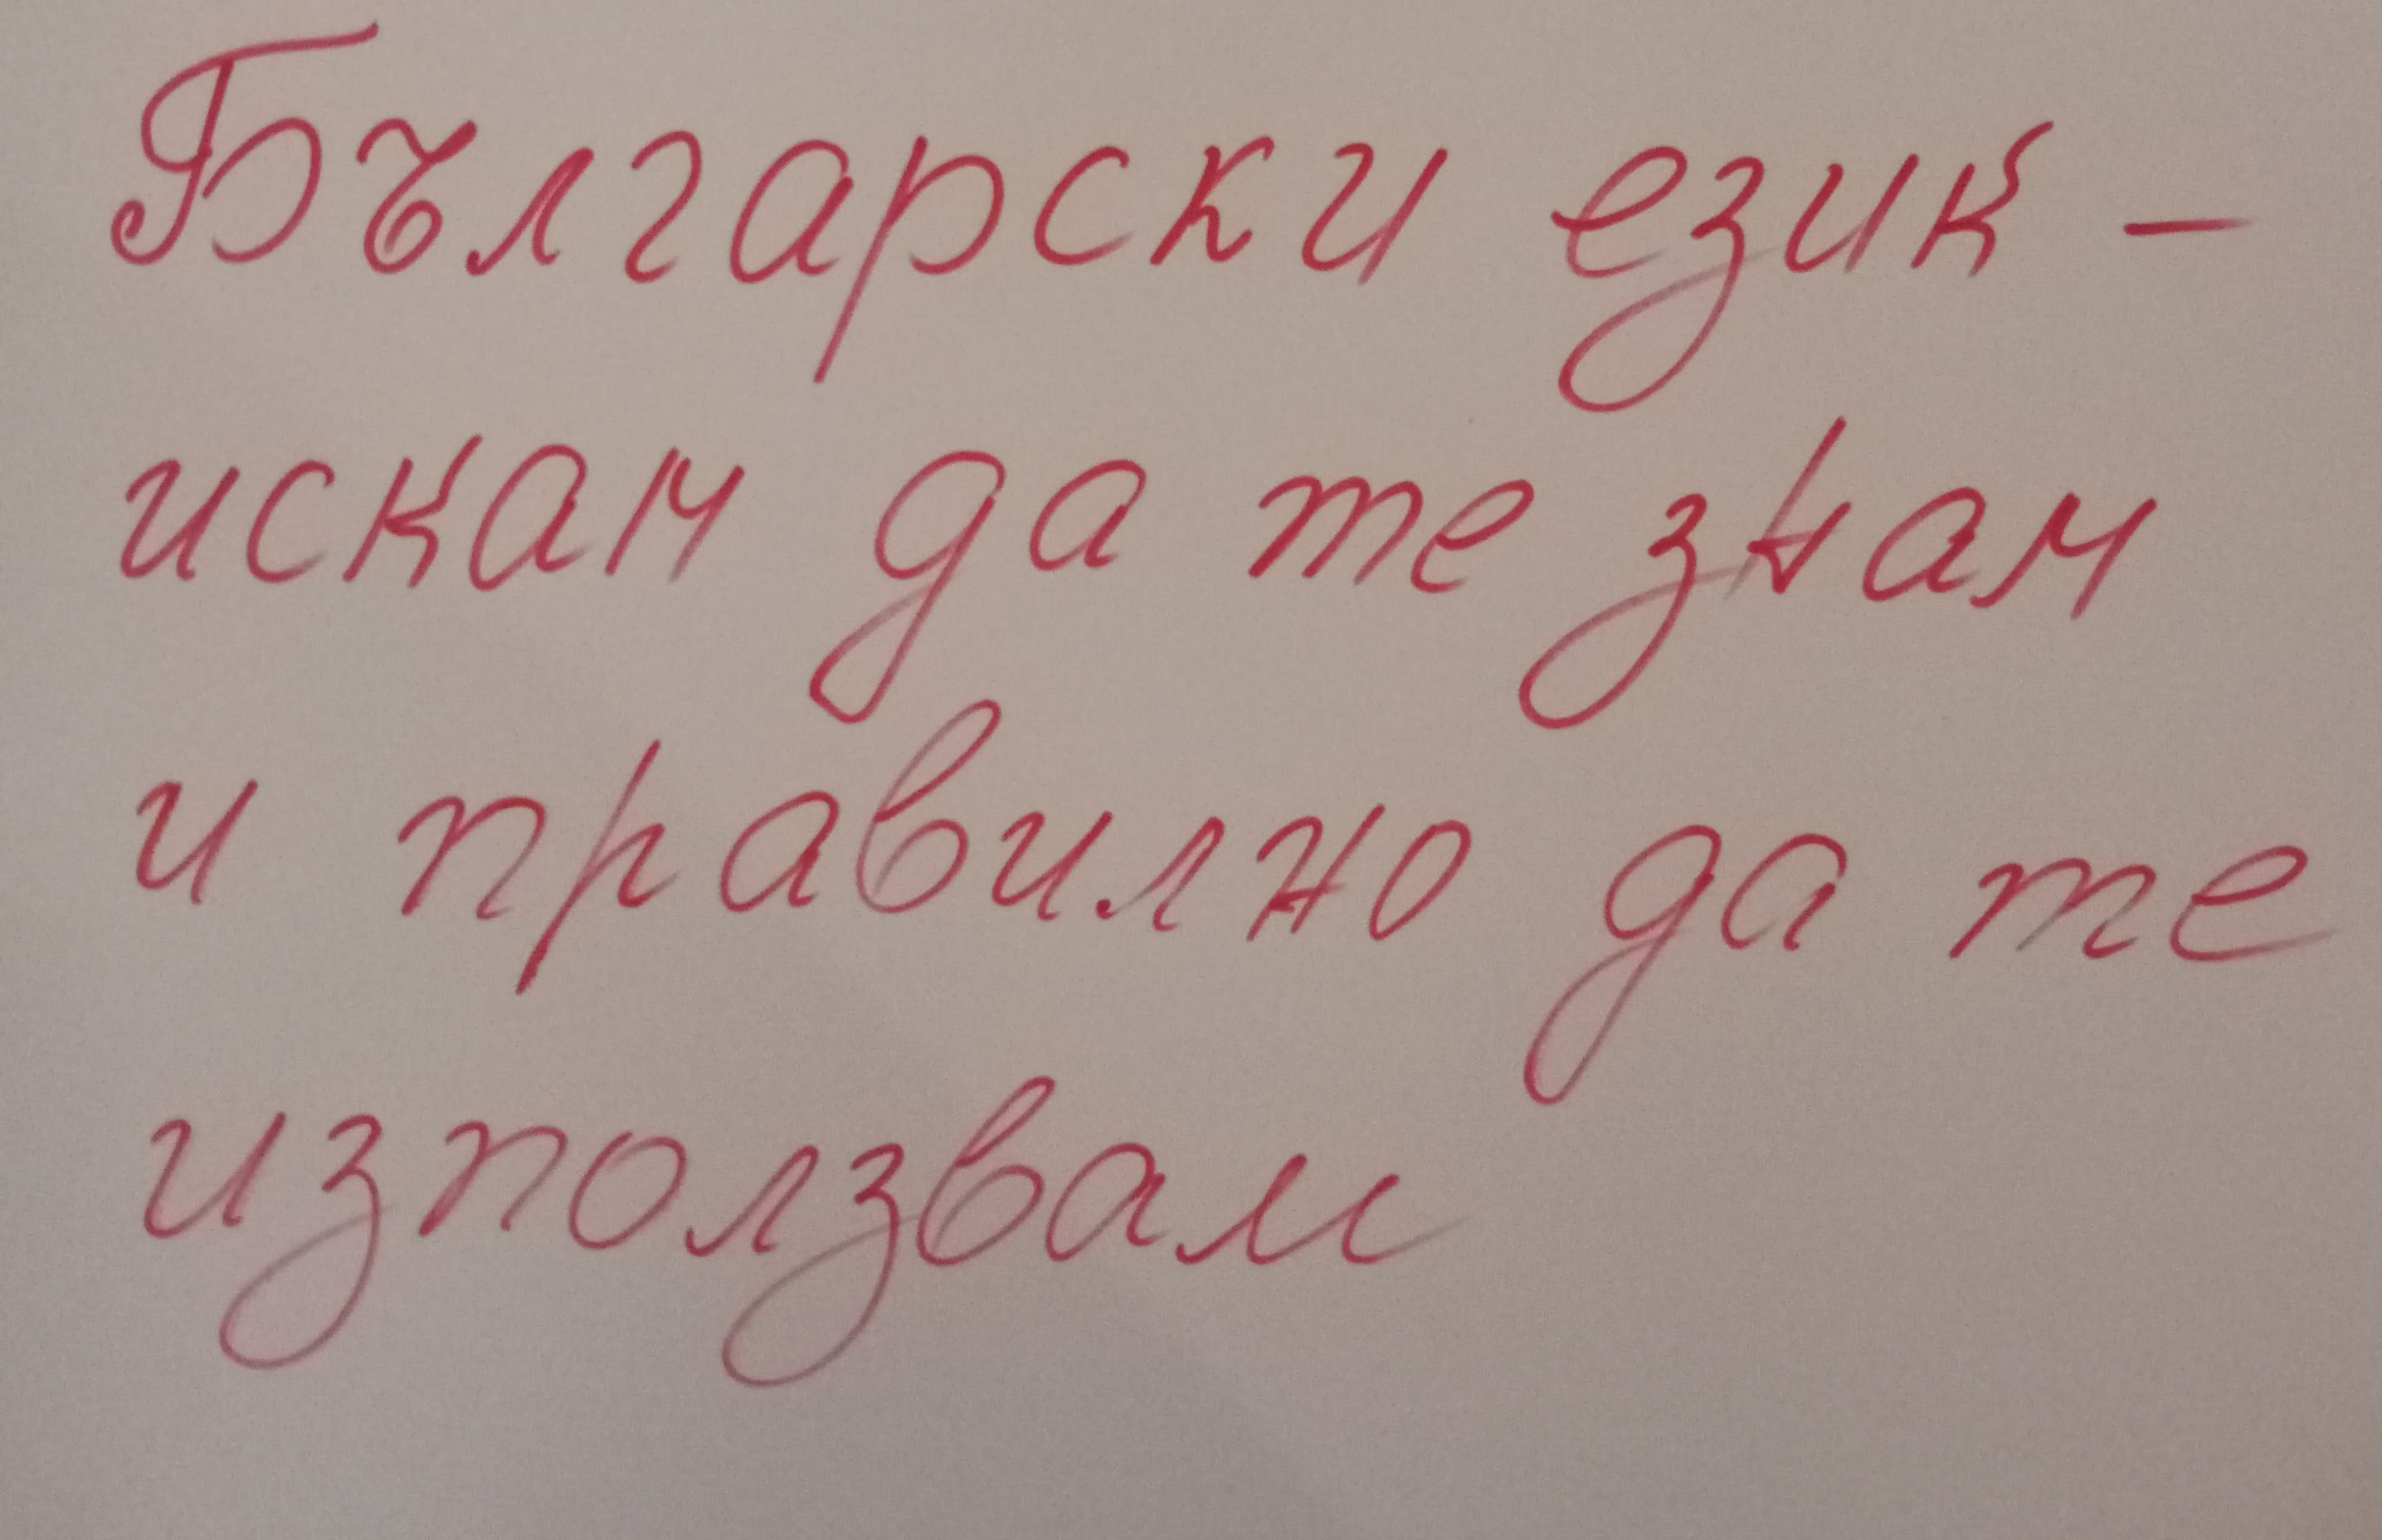 Български език -
искам да те знам
и правилно да те
използвам